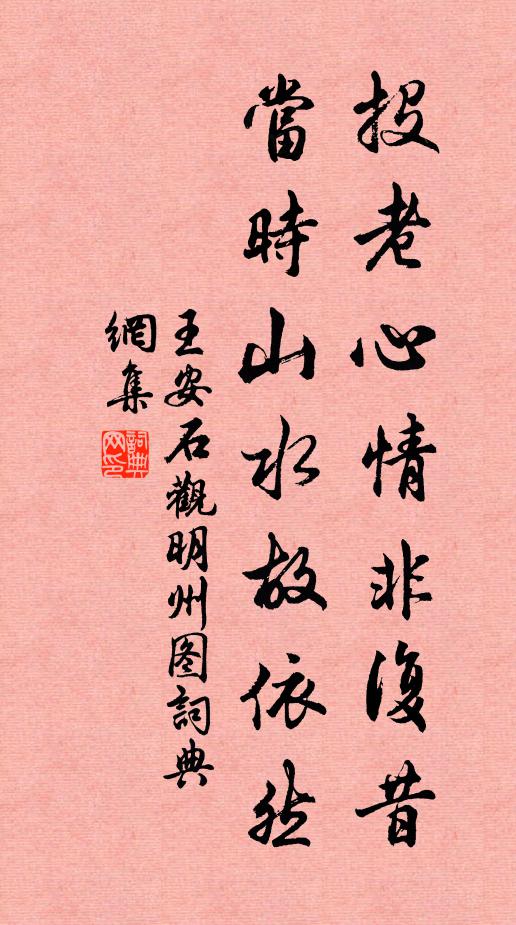 投老心情非復昔
當時山水故依然
王安石觀明州图詞典
網集
詞典網印